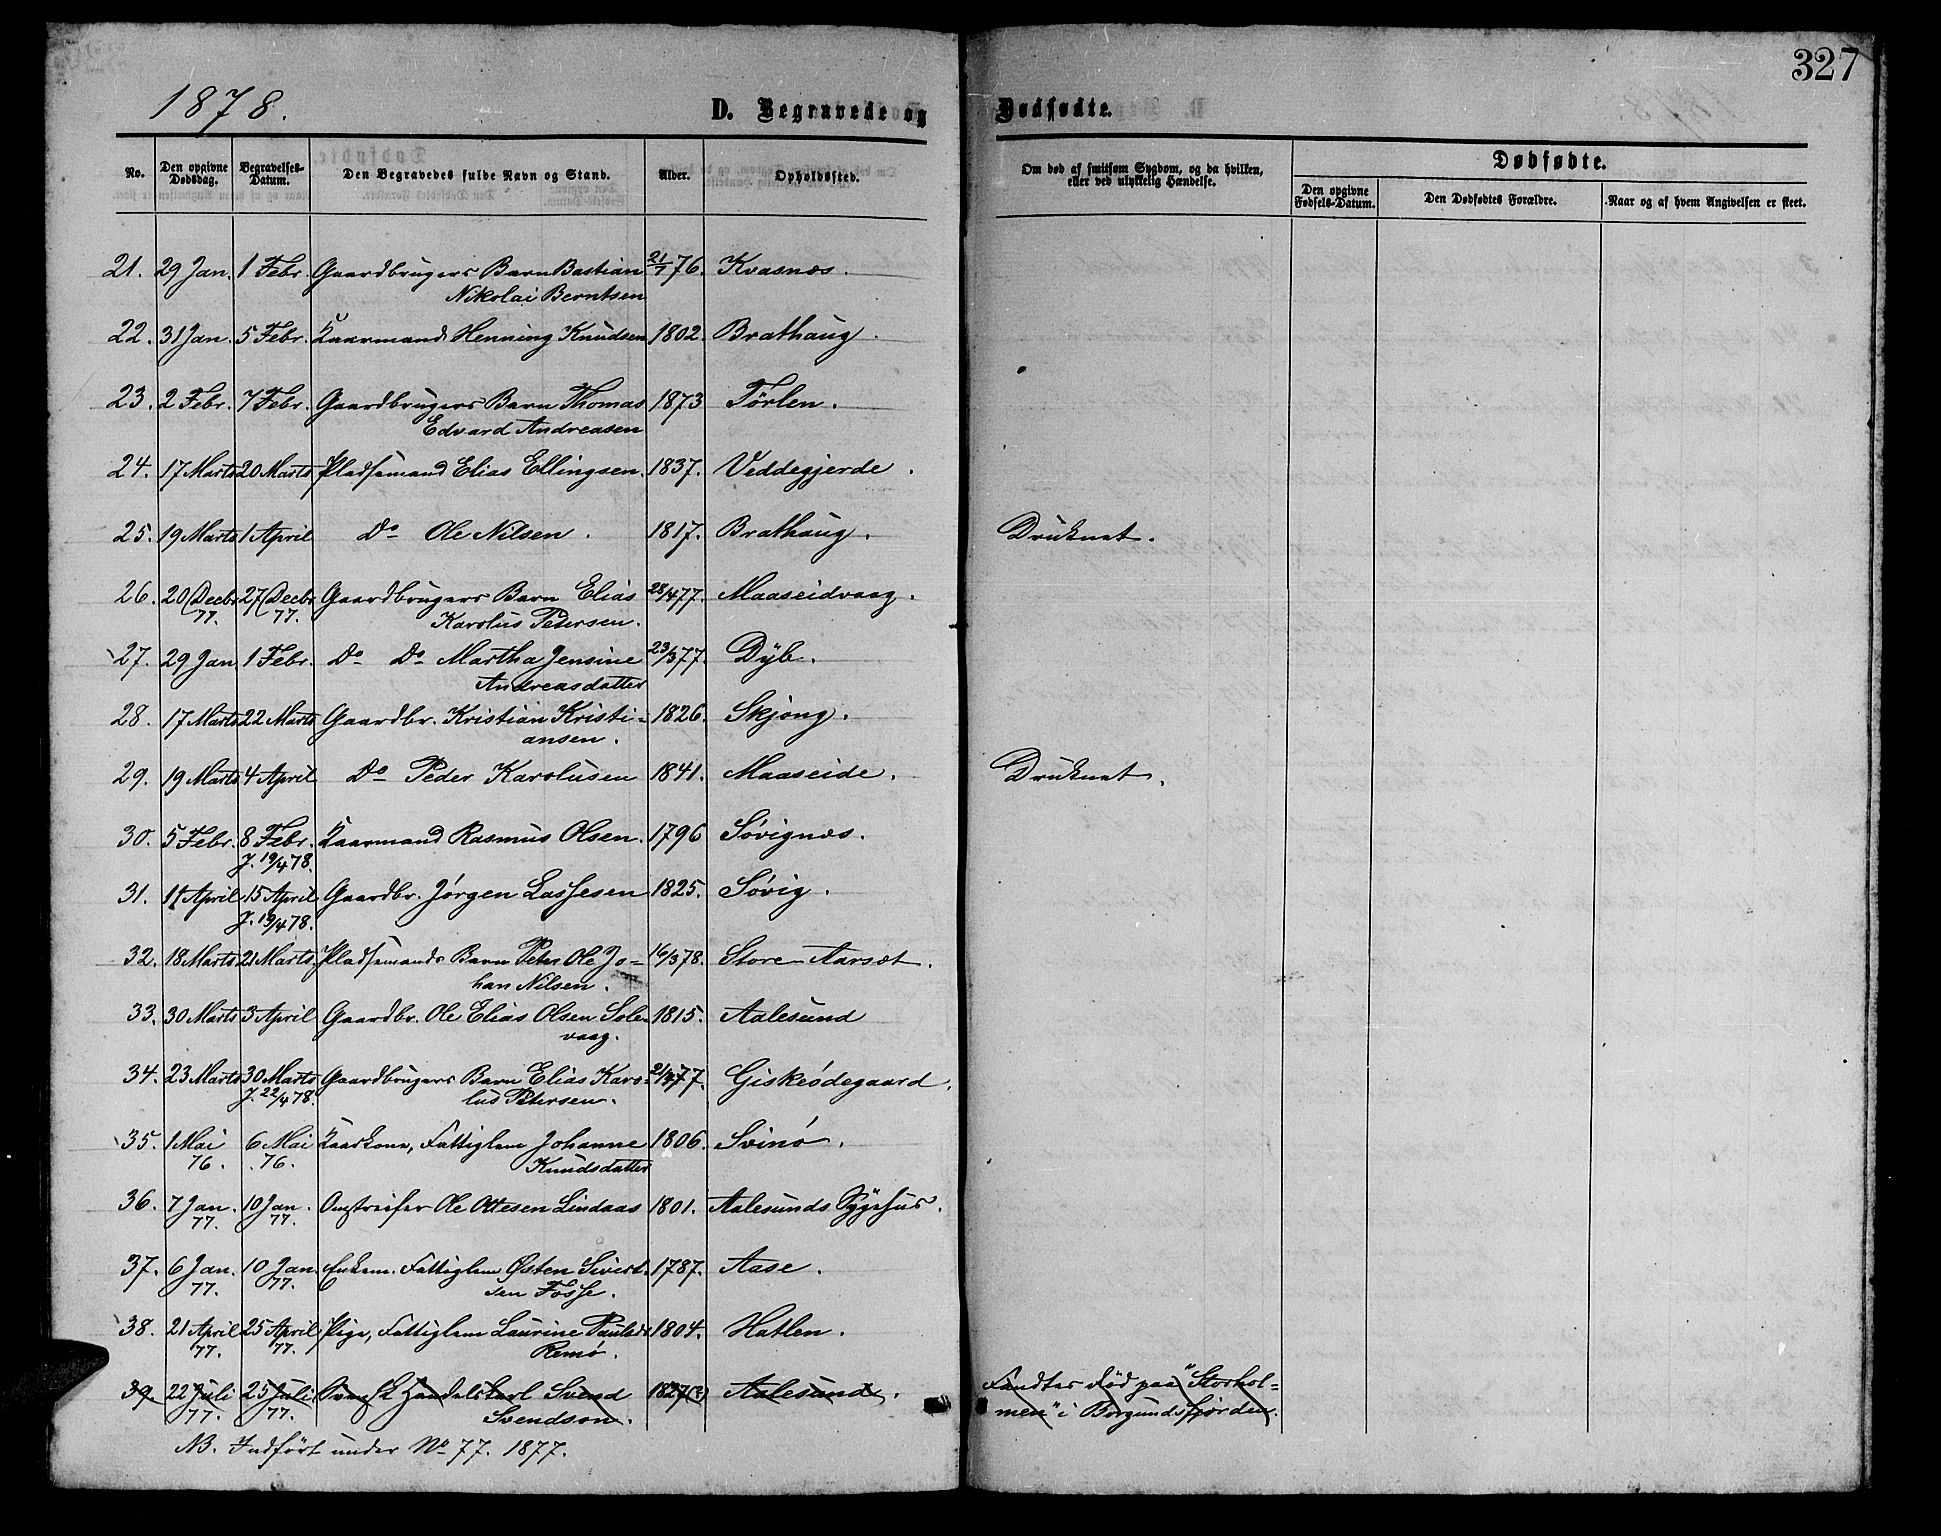 327
1878.
D. Begravede og Dødfødte.
No. Den opgivne Dødsdag. Begravelses-Datum. Den Begravedes fulde Navn og Stand. Alder. Opholdssted. Om død af smitsom Sygdom, og da hvilken, eller ved ulykkelig Hændelse. Dødfødte.
Den opgivne Fødsels-Datum. Den Dødfødtes Forældre. Naar og af hvem Angivelsen er skeet.
21. 29 Jan. 1 Febr. Gaardbrugers Barn Bastian 21/7 76. Kvasnæs.
Nikolai Berntsen
22. 31 Jan. 5 Febr. Kaarmand Henning Knudsen 1802. Brathaug.
23. 2 Febr. 7 Febr. Gaardbrugers Barn Thomas 1873 Tørlen.
Edvard Andreasen
24. 17 Marts 20 Marts Pladsemand Elias Ellingsen. 1837. Veddegjerde.
25. 19 Marts 1 April Do Ole Nilsen. 1817. Brathaug. Druknet.
26. 20 Decbr 27 Decbr. Gaardbrugers Barn Elias 28/4 77. Maaseidvaag.
77. 77. Karolus Pedersen.
27. 29 Jan 1 Febr. Do Do Martha Jensine 23/3 77. Dyb.
Andreasdatter
28. 17 Marts 22 Marts Gaardbr. Kristian Kristi- 1826. Skjong.
ansen.
29. 19 Marts 4 April Do Peder Karolusen 1841. Maaseide. Druknet.
30. 5 Febr. 8 Febr. Kaarmand Rasmus Olsen. 1796 Søvignæs.
J. 19/4 78.
31. 11 April 15 April Gaardbr. Jørgen Lassesen 1825. Søvig.
J. 19/4 78.
32. 18 Marts 21 Marts Pladsemands Barn Peter Ole Jo- 16/3 78. Store-Aarsæt.
han Nilsen.
33. 30 Marts 3 April Gaardbr. Ole Elias Olsen Sole- 1815. Aalesund
vaag.
34. 23 Marts 30 Marts Gaardbrugers Barn Elias Karo- 77. Giskeødegaard.
J. 22/4 78. lus Petersen.
35. 1 Mai 6 Mai Kaarkone, Fattiglem Johanne 1806. Svinø.
76. 76. Knudsdatter
36. 7 Jan. 10 Jan. Omstreifer Ole Ottesen Lindaas 1801. Aalesunds Sygehus.
77. 77.
37. 6 Jan. 10 Jan. Enkem. Fattiglem Østen Sivert- 1787. Aase.
77. 77. sen Fosse.
38. 21 April 25 April Pige, Fattiglem Laurine Paulsdr 1804. Hatlen.
77. 77. Remø.
39. 22 Juli 25 Juli Svensk Handelskarl Svend 1827(?) Aalesund. Fandtes død paa "Storhol-
77. 77. Svendson. men" i Borgundsfjorden.
NB. Indført under No 77. 1877.